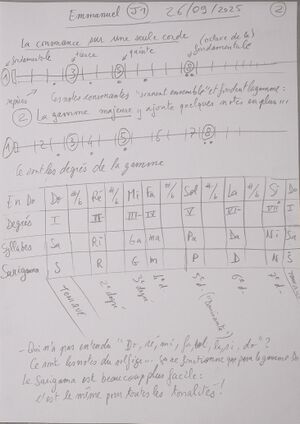 Emmanuel J1 26/09/2025 2
La consonance sur une seule corde
(octave de la)
fondamentale tierce quinte fondamentale
1 3 5 8
repères Ces notes consonantes "sonnent ensemble" et fondent la gamme :
2 La gamme majeure y ajoute quelques notes en plus ...
1 2 3 4 5 6 7 8
Ce sont les degrés de la gamme
En Do Do #/b Ré #/b Mi Fa #/b Sol #/b La #/b Si Do
Degrés I II III IV V VI VII I
Syllabes Sa Ri Ga Ma Pa Da Ni Sa
Sarigama S R G M P D N S
TONIQUE 2° degré 3° degré 4° d. 5° d. (Dominante) 6° d. 7° d.
- Qui n'a pas entendu "Do, ré, mi, fa, sol, la, si, do" ?
Ce sont les notes du solfège ... ça ne fonctionne que pour la gamme de Do
Le Sarigama est beaucoup plus facile :
c'est le même pour toutes les tonalités !